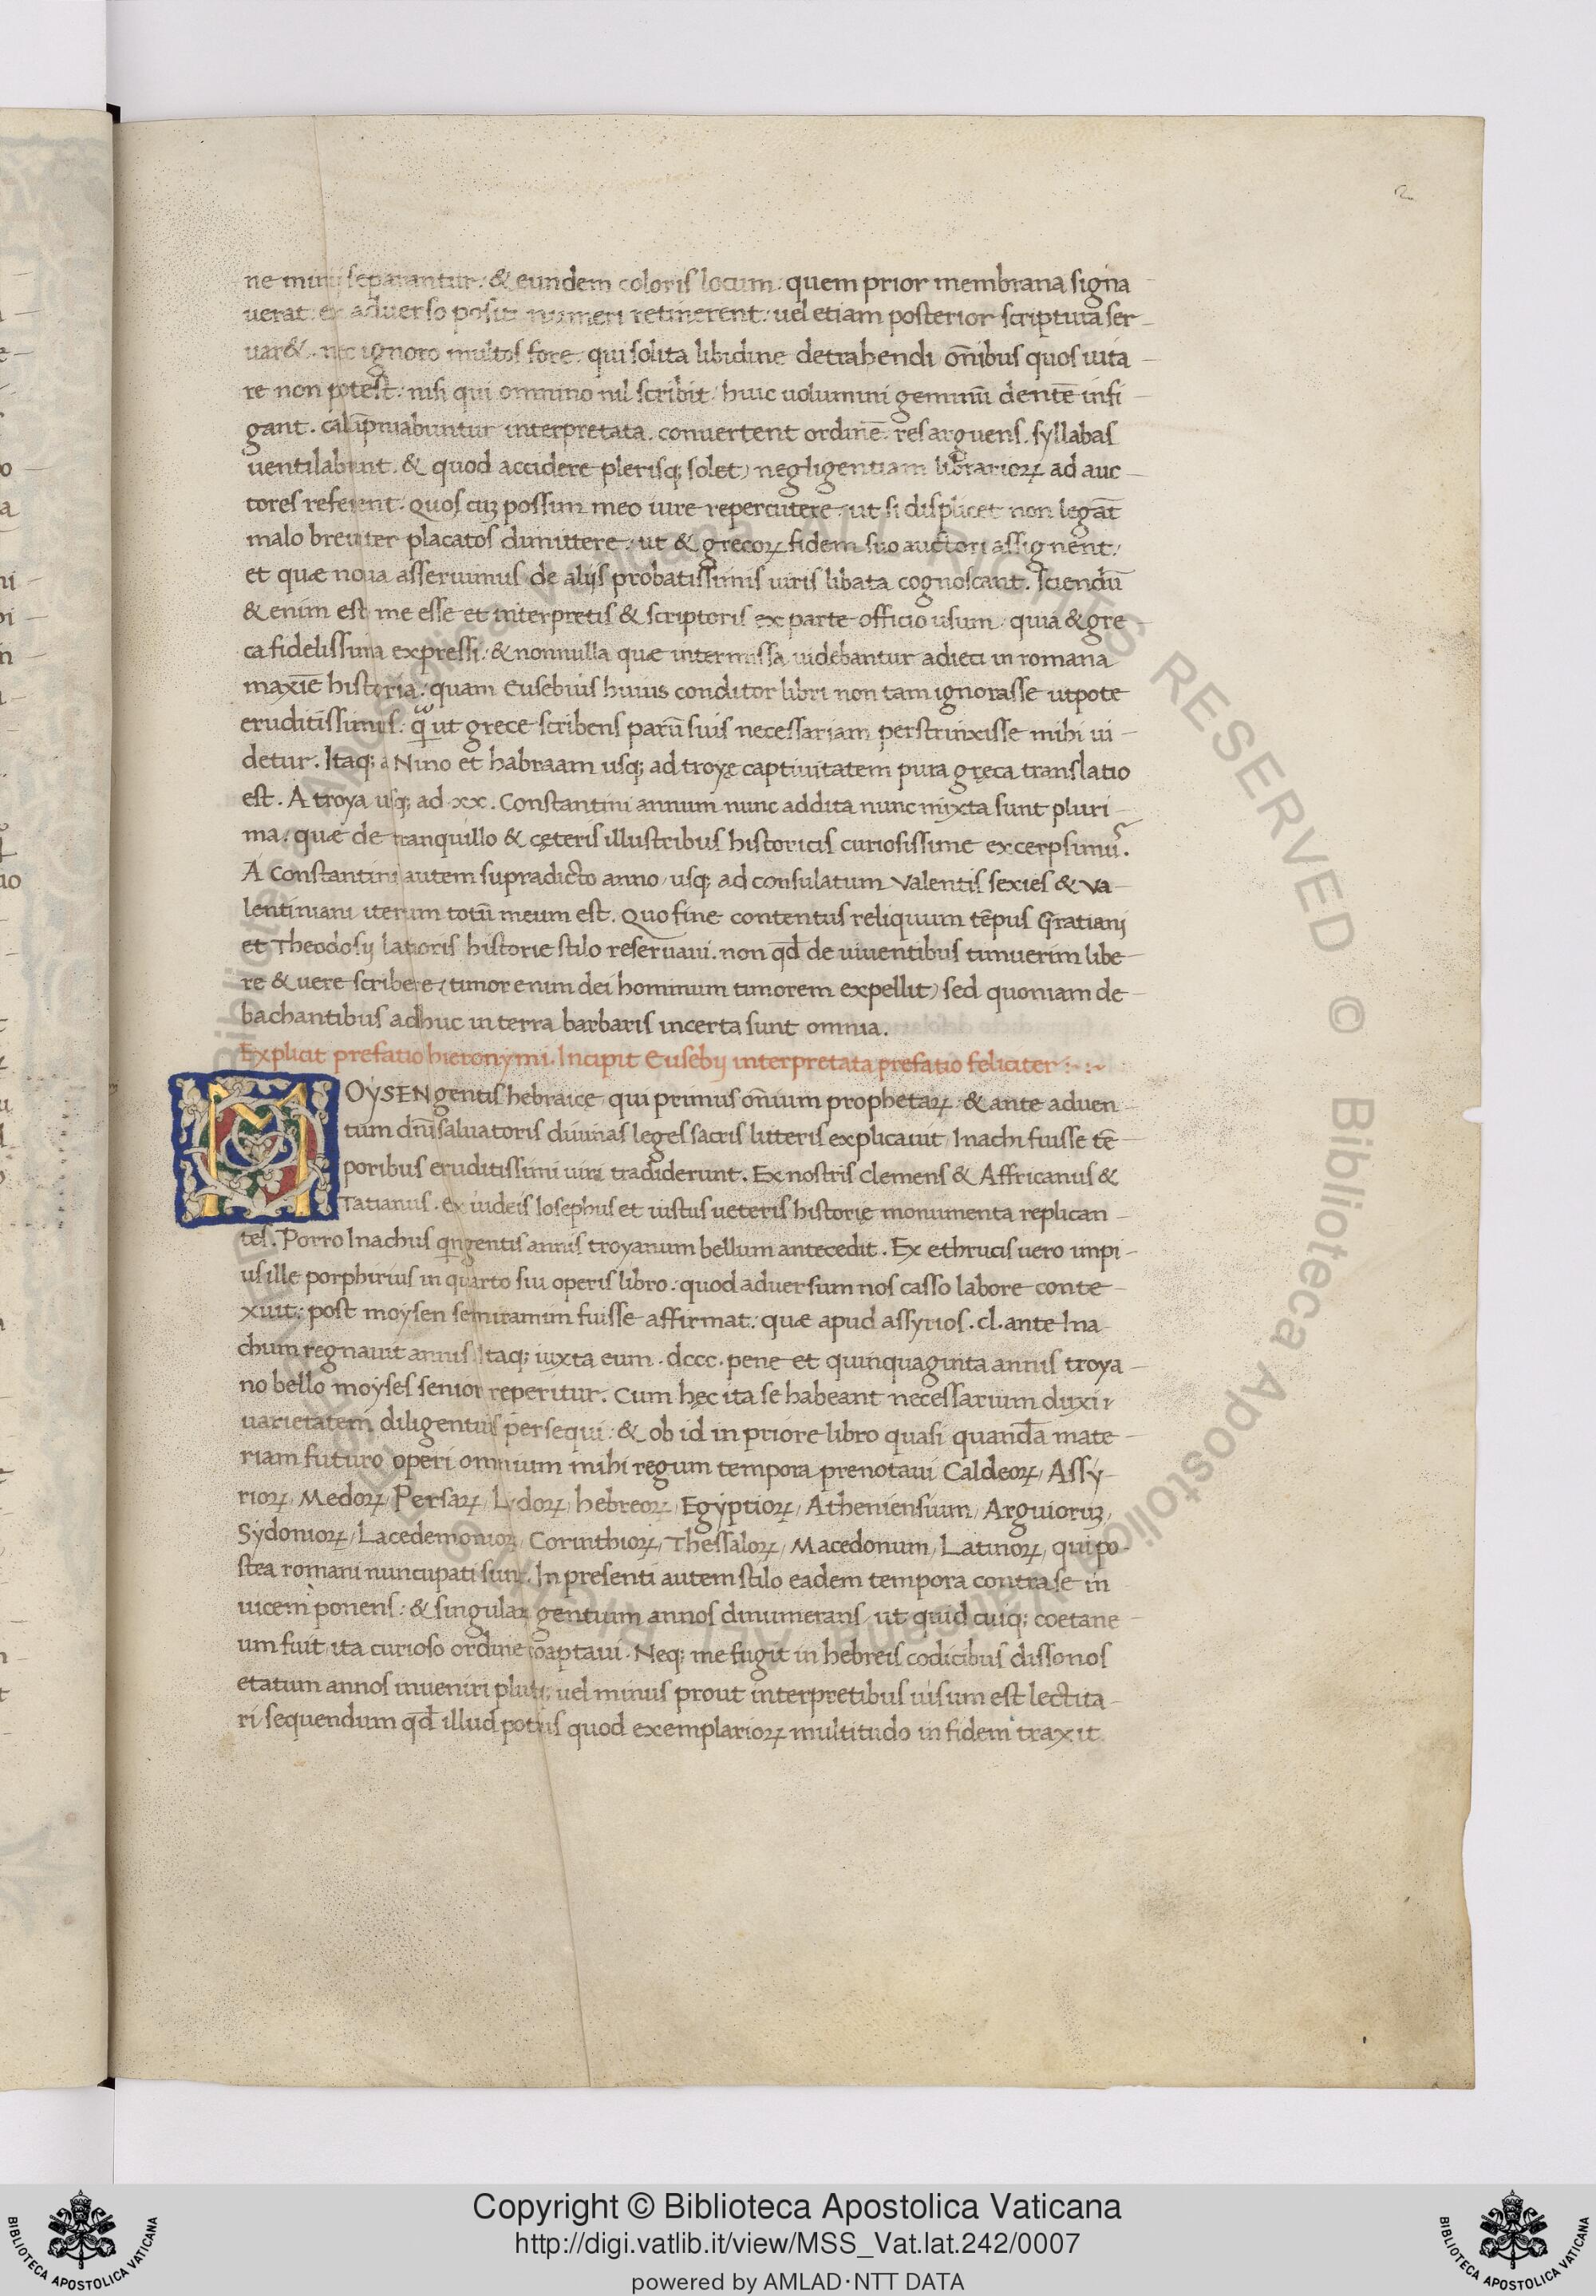 2
ne muri separantur: & eundem coloris locum: quem prior membrana signa
uerat: ex aduerso positi numeri retinerent: uel etiam posterior scriptura ser
uar&. nec ignoro multos fore: qui solita libidine detrahendi om̄ibus quos uita
re non potest: nisi qui omnino nil scribit: huic uolumini geminū dentē infi
gant. calūpniabuntur interpretata. conuertent ordinē. res arguens. syllabas
uentilabunt. & quod accidere plerisq; solet) negligentiam librarioꝝ ad auc
tores referent. Quos cuꝫ possim meo iure repercutere ut si displicet non legāt
malo breuiter placatos dimittere: ut & grecoꝝ fidem suo auctori assignent:
et quæ noua asseruimus de alijs probatissimis uiris libata cognoscant. Sciendū
& enim est me esse et interpretis & scriptoris ex parte officio usum: quia & gre
ca fidelissima expressi: & nonnulla quæ intermissa uidebantur adieci in romana
maxīe historia: quam Eusebius huius conditor libri non tam ignorasse utpote
eruditissimus: ꝙ ut grece scribens parū suis necessariam perstrinxisse mihi ui
detur. Itaq; a Nino et habraam usq; ad troyę captiuitatem pura gręca translatio
est. A troya usq; ad xx. Constantini annum nunc addita nunc mixta sunt pluri
ma: quæ de tranquillo & cęteris illustribus historicis curiosissime excerpsimus.
A Constantini autem supradicto anno usq; ad consulatum Valentis sexies & Va
lentiniani iterum totū meum est. Quo fine contentus reliquum tēpus Gratiani
et Theodosij latioris historie stilo reseruaui. non qđ de uiuentibus timuerim libe
re & uere scribere (timor enim dei hominum timorem expellit) sed quoniam de
bachantibus adhuc in terra barbaris incerta sunt omnia.
Explicit prefatio hieronymi. Incipit Eusebij interpretata prefatio feliciter :·:~
MOYSEN gentis hebraicę qui primus om̄ium prophetaꝝ: & ante aduen
tum dn̄i saluatoris diuinas leges sacris litteris explicauit Inachi fuisse tē
poribus eruditissimi uiri tradiderunt. Ex nostris clemens & Affricanus &
Tatianus. ex iudeis Iosephus et iustus ueteris historię monumenta replican
tes. Porro Inachus qngentis annis troyanum bellum antecedit. Ex ethrucis uero impi
us ille porphirius in quarto sui operis libro: quod aduersum nos casso labore conte
xuit: post moysen semiramim fuisse affirmat: quæ apud assyrios .cl. ante Ina
chum regnauit annis Itaq; iuxta eum .dccc. pene et quinquaginta annis troya
no bello moyses senior reperitur. Cum hęc ita se habeant necessarium duxi
uarietatem diligentius persequi: & ob id in priore libro quasi quandā mate
riam futuro operi omnium mihi regum tempora prenotaui Caldeoꝝ, Assy
rioꝝ, Medoꝝ, Persaꝝ, Lydoꝝ, hebreoꝝ, Egyptioꝝ, Atheniensium, Arguioruꝫ,
Sydonioꝝ, Lacedemonioꝝ, Corinthioꝝ, Thessaloꝝ, Macedonum, Latinoꝝ, qui po
stea romani nuncupati sunt. In presenti autem stilo eadem tempora contra se in
uicem ponens: & singulaꝝ gentium annos dinumerans ut quid cuiq; coetane
um fuit ita curioso ordine coaptaui. Neq; me fugit in hebreis codicibus dissonos
etatum annos inueniri plus: uel minus prout interpretibus uisum est lectita
ri sequendum qđ illud potius quod exemplarioꝝ multitudo in fidem traxit
Copyright © Biblioteca Apostolica Vaticana
http://digi.vatlib.it/view/MSS_Vat.lat.242/0007
powered by AMLAD·NTT DATA